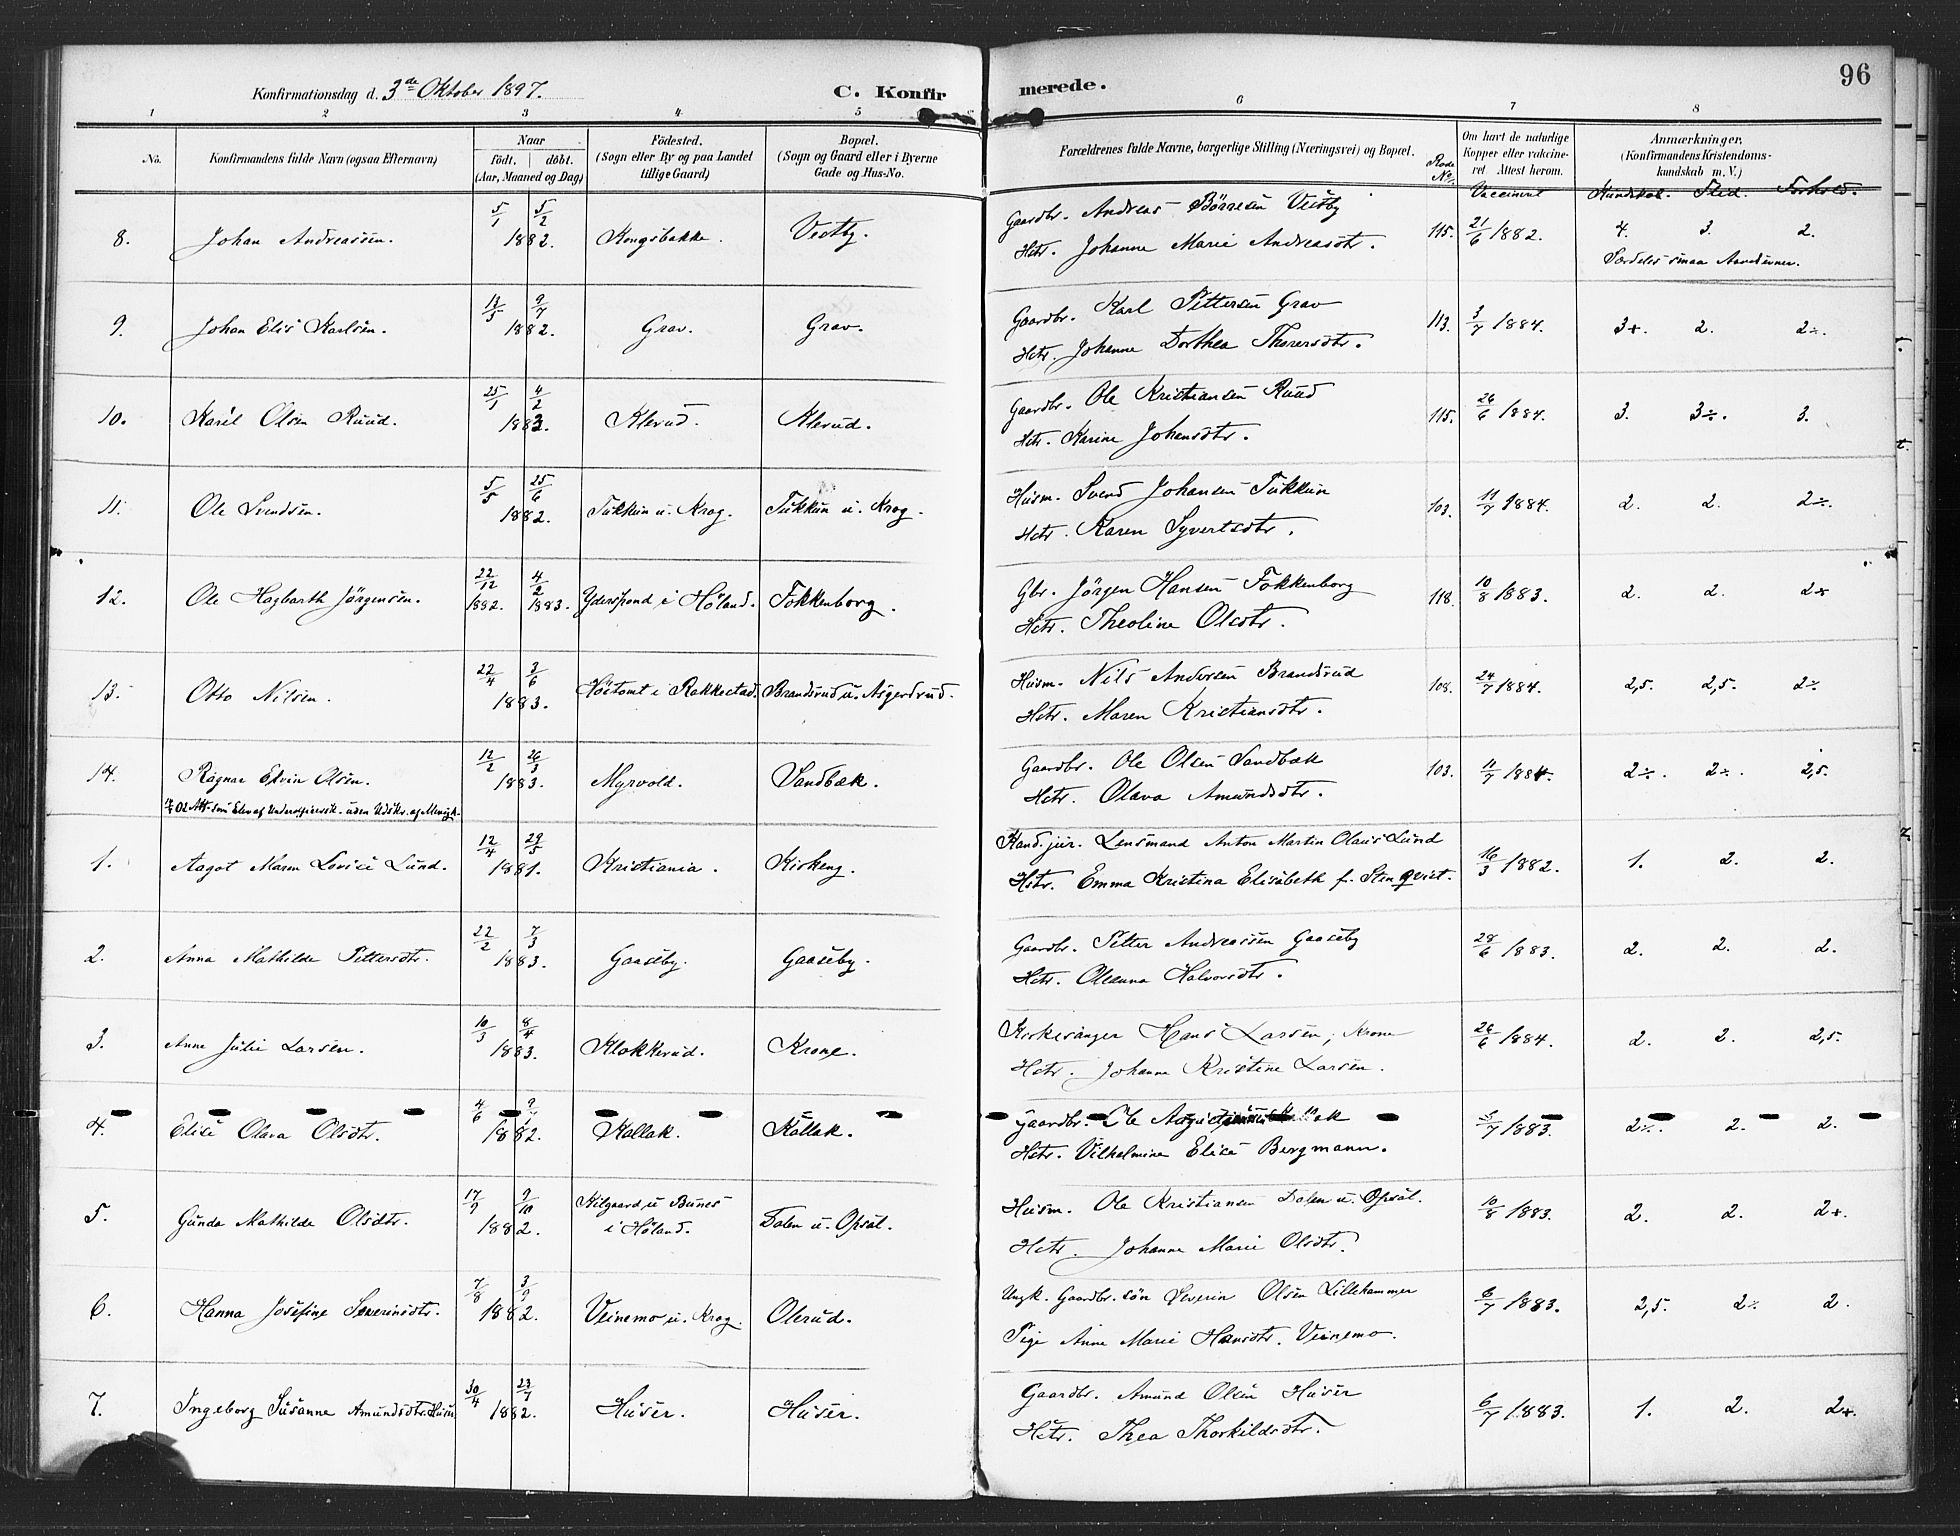 Konfirmationsdag d. 3de Oktober 1897. C. Konfirmerede. 96
1 2 3 4 5 6 7 8
No. Konfirmandens fulde Navn (ogsaa Efternavn) Naar födt, döbt. (Aar, Maaned og Dag) Födested. (Sogn eller By og paa Landet tillige Gaard) Bopæl. (Sogn og Gaard eller i Byerne Gade og Hus-No. Forældrenes fulde Navne, borgerlige Stilling (Næringsvei) og Bopæl. Rode No. Om havt de naturlige Kopper eller vakcineret Attest herom. Anmærkninger. (Konfirmandens Kristendomskundskab m. V.)
Vaccineret Kundskab. Flid. Forhold.
8. Johan Andreassen. 5/1 5/2 1882. Kongsbakke. Vestby. Gaardbr. Andreas Børresen Vestby
Hstr. Johanne Marie Andreasdtr. 115. 21/6 1882. 4. 3. 2.
Særdeles smaa Aandsevner.
9. Johan Elis Karlsen. 13/5 9/7 1882. Grav. Grav. Gaardbr. Karl Pettersen Grav
Hstr. Johanne Dorthea Thorersdtr. 113. 3/7 1884. 3+. 2. 2÷.
10. Karel Olsen Ruud. 25/1 4/2 1883. Klerud. Klerud. Gaardbr. Ole Kristiansen Ruud
Hstr. Karine Johansdtr. 115. 26/6 1884. 3. 3÷. 3.
11. Ole Svendsen. 5/5 25/6 1882. Tukkun u. Krog. Tukkun u. Krog. Husm. Svend Johansen Tukkun
Hstr. Karen Syvertsdtr. 103. 11/7 1884. 2. 2. 2÷.
12. Ole Hagbarth Jørgensen. 22/12 1882. 4/2 1883. Yderspond i Høland. Fokkenborg. Gbr. Jørgen Hansen Fokkenborg
Hstr. Theoline Olsdtr. 118. 10/8 1883. 2. 2. 2+
13. Otto Nilsen. 22/4 3/6 1883. Høitomt i Rakkestad. Brandsrud u. Asgerdrud. Husm. Nils Andersen Brandsrud
Hstr. Maren Kristiansdtr. 108. 24/7 1884. 2,5. 2,5. 2÷
14. Ragnar Edvin Olsen. 12/2 26/3 1883. Myrvold. Sandbæk. Gaardbr. Ole Olsen Sandbæk
Hstr. Olava Amundsdtr. 103. 11/7 1884. 2÷. 2÷. 2,5.
02 Att. som Elev af Underofficersk. uden Udskr. af Menigh.
1. Aagot Maren Lovise Lund. 12/4 29/5 1881. Kristiania. Kirkeng. Kand. jur. Lensmand Anton Martin Olaus Lund
Hstr. Emma Kristina Elisabeth f. Stenqvist. 16/3 1882. 1. 2. 2.
2. Anna Mathilde Pettersdtr. 22/2 7/3 1883. Gaaseby. Gaaseby. Gaardbr. Petter Andreassen Gaaseby
Hstr. Oleanna Halvorsdtr. 28/6 1883. 2. 2. 2.
3. Anne Julie Larsen. 10/3 8/4 1883. Klokkerud. Krone. Kirkesanger Hans Larsen, Krone
Hstr. Johanne Kristine Larsen. 26/6 1884. 2. 2. 2,5.
4. Elise Olava Olsdtr. 4/6 1882. Kollak. Kollak. Gaardbr. Ole
Hstr. Vilhelmine Elise Bergmann. 5/7 1883. 2÷. 2. 2.
5. Gunda Mathilde Olsdtr. 17/9 9/10 1882. Kilgaard u Bunes i Høland. Dalen u. Opsal. Husm. Ole Kristiansen Dalen u. Opsal.
Hstr. Johanne Marie Olsdtr. 10/8 1883. 2. 2. 2+.
6. Hanna Josefine Severinsdtr. 7/8 3/9 1882. Veinemo u. Krog. Olerud. Ungk. Gaardbr.søn Severin Olsen Lillehammer
Pige Anne Marie Hansdtr. Veinemo. 6/7 1883. 2,5. 2÷ 2.
7. Ingeborg Susanne Amundsdtr. Huser 30/4 23/7 1882. Huser. Huser. Gaardbr. Amund Olsen Huser
Hstr. Thea Thorkildsdtr. 6/7 1883. 1. 2. 2+.